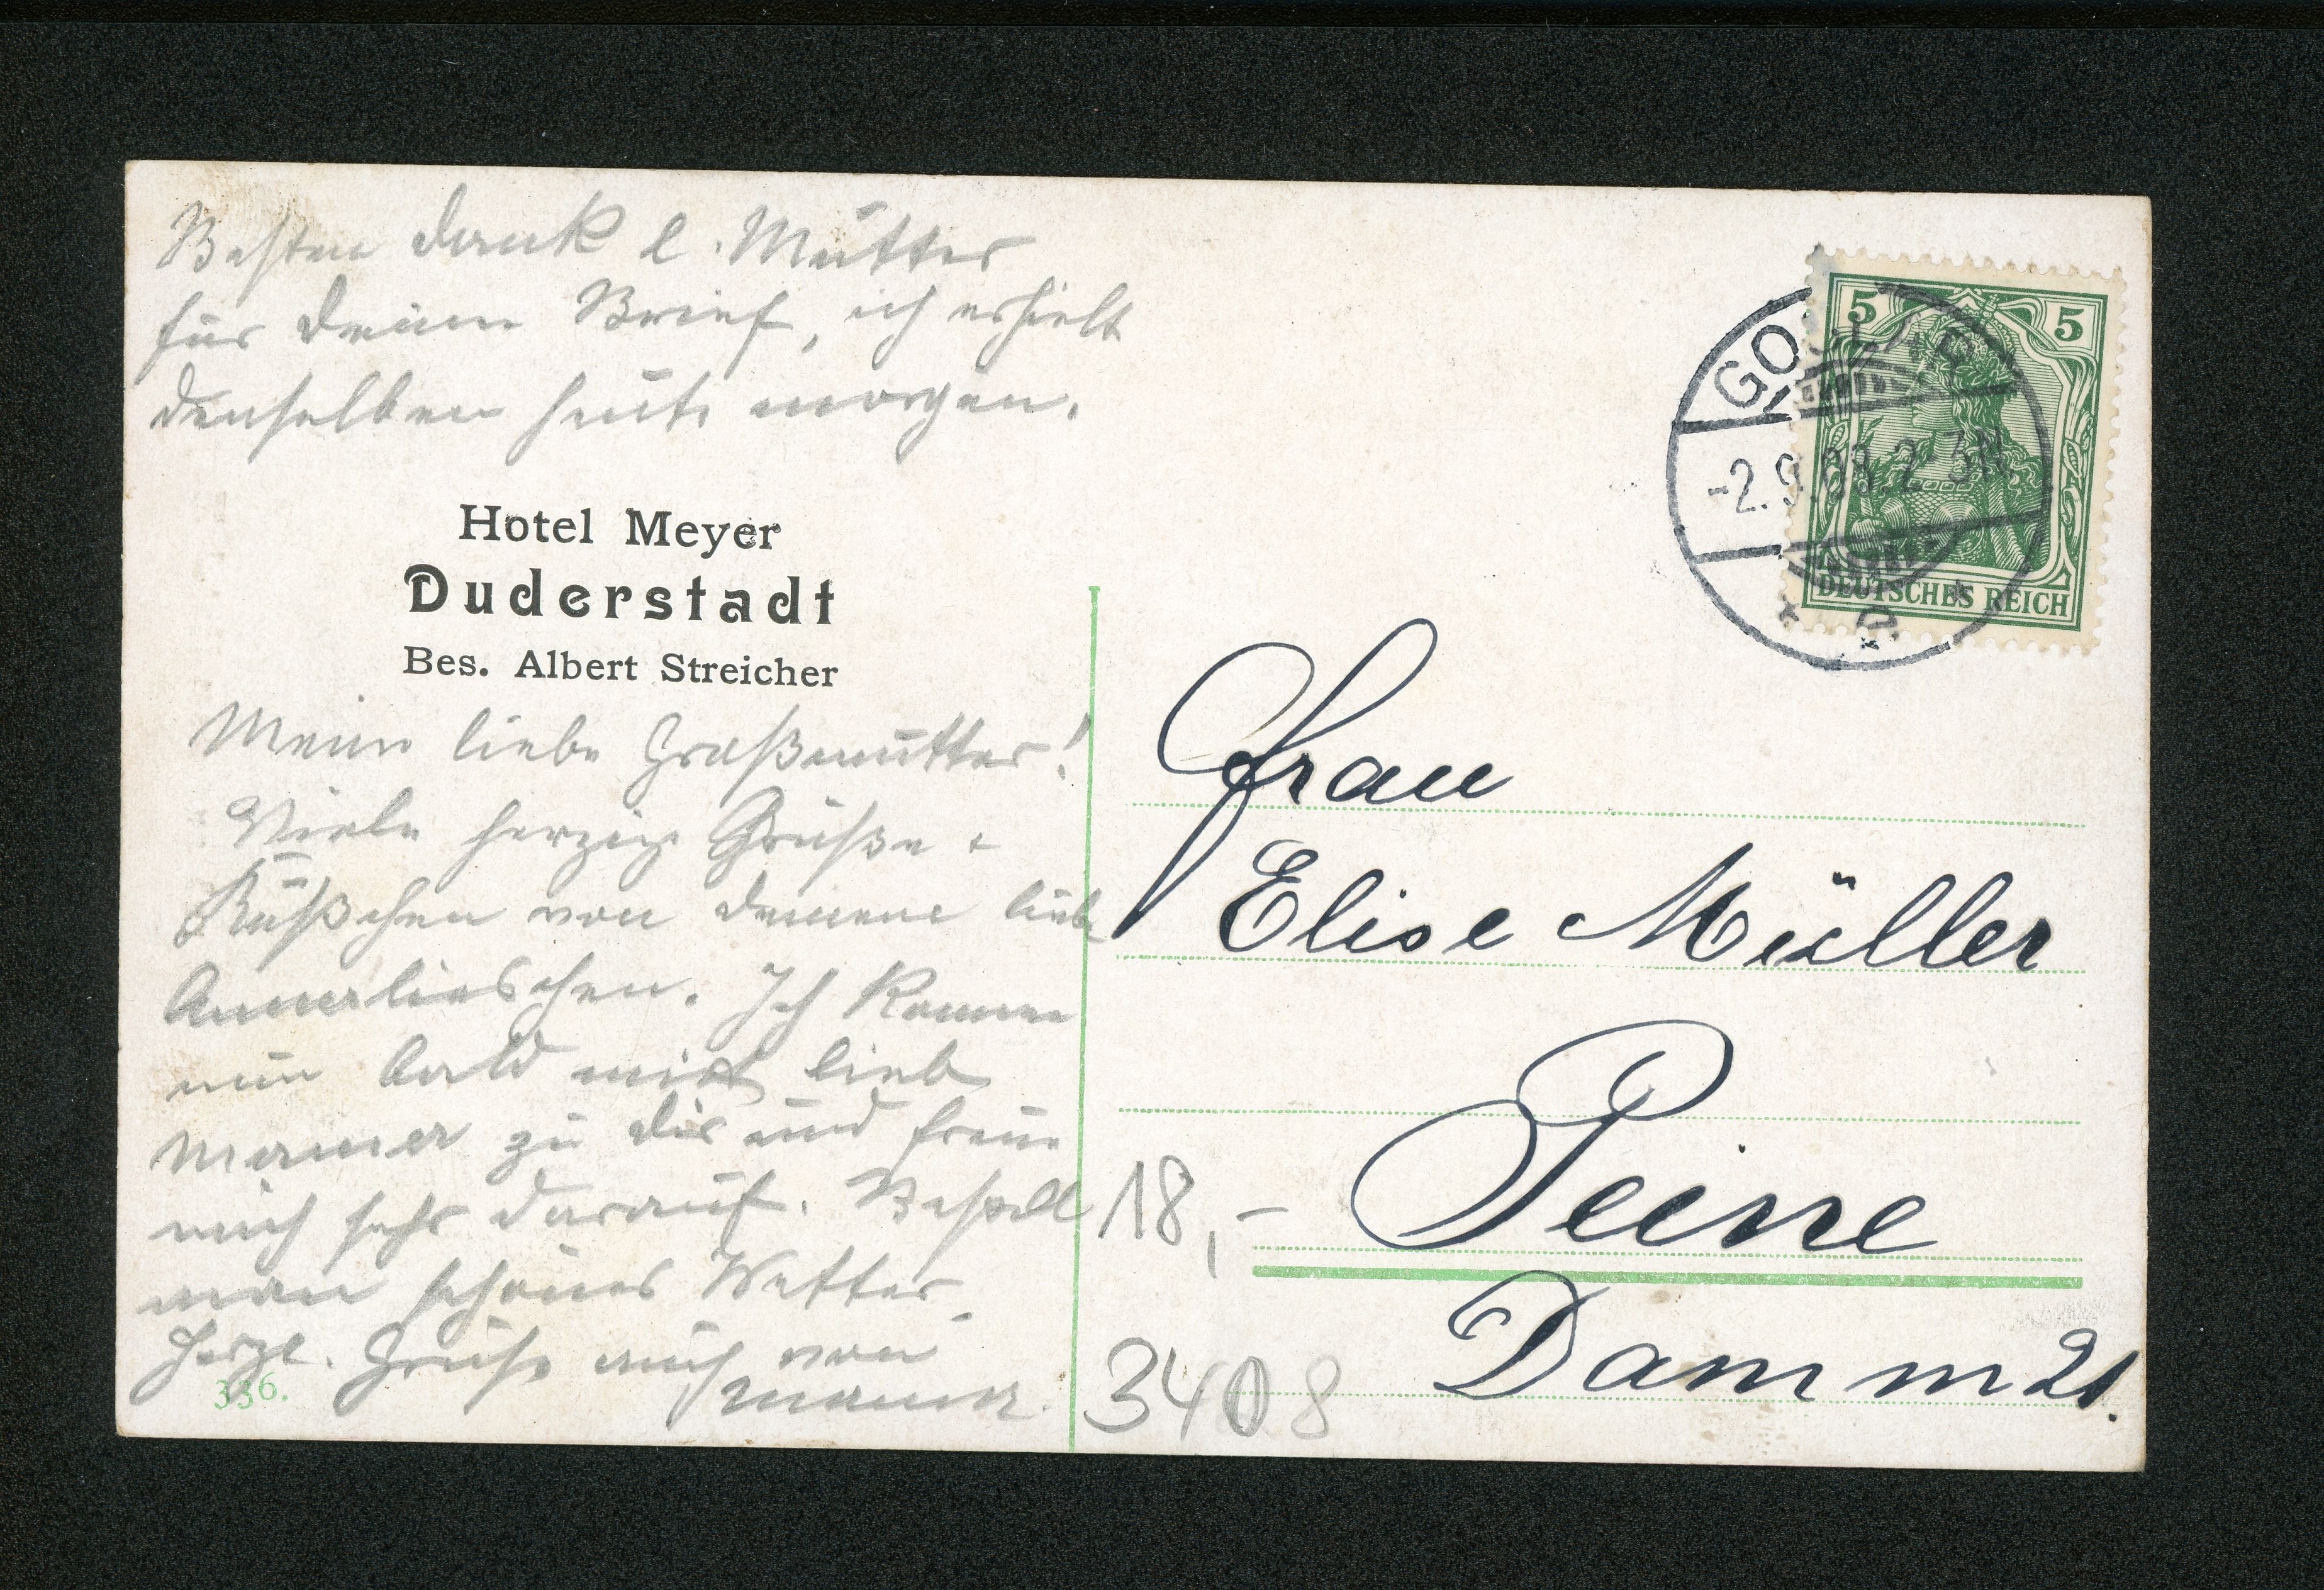 Besten Dank l. Mutter
für Deinen Brief, ich erhielt
denselben heute morgen.
Hotel Meyer
Duderstadt
Bes. Albert Streicher
Meine liebe Großmutter!
Viele herzige Grüße +
Küßchen von Deinem lieb
Annerlieschen. Ich komme
nun bald mit lieb
Mama zu Dir und freue
mich sehr darauf. Bestell
man schönes Wetter.
Herzl. Grüße auch von
Mama
336.
5 5
GOSLAR
-2.9.09.2-3N
DEUTSCHES REICH
* e. *
Frau
Elise Müller
Peine
Damm 21.
18,-
3408